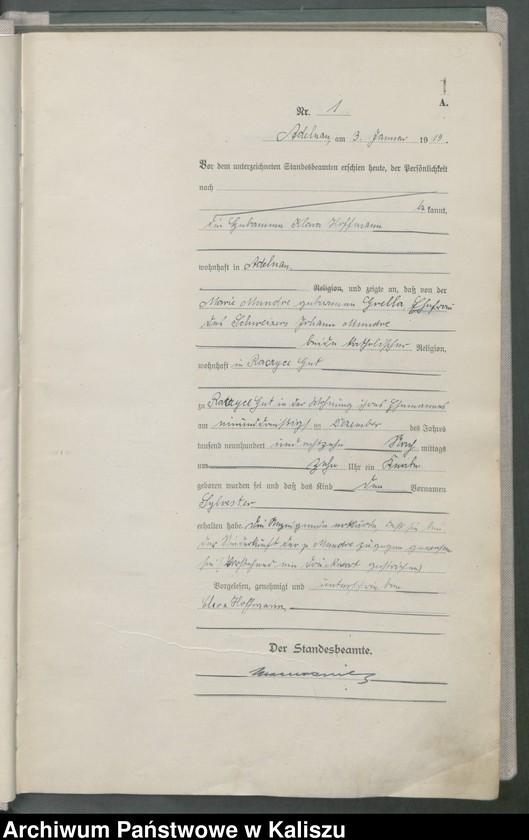 A.
Nr. 1
Adelnau, am 3. Januar 1919.
Vor dem unterzeichneten Standesbeamten erschien heute, der Persönlichkeit
nach
bekannt,
die Hebamme Klara Hoffmann
wohnhaft in Adelnau
Religion, und zeigte an, daß von der
Marie Mundre geborenen Grella, Ehefrau
des Schweizers Johann Mundre
beide katholischer Religion,
wohnhaft in Raczyce Gut
zu Raczyce Gut in der Wohnung ihres Ehemannes
am einunddreißigsten Dezember des Jahres
tausend neunhundert und achtzehn Nachmittags
um zehn Uhr ein Knabe
geboren worden sei und daß das Kind den Vornamen
Sylvester
erhalten habe. Die Anzeigende erklärte, daß sie bei
der Niederkunft der p Mundre zugegen gewesen
sei. (Vorstehend ein Druckwort gestrichen)
Vorgelesen, genehmigt und unterschrieben
Klara Hoffmann
Der Standesbeamte.
Archiwum Państwowe w Kaliszu